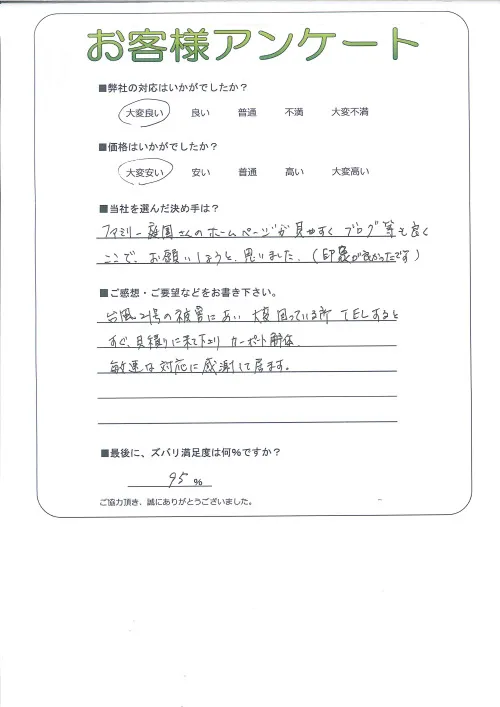 お客様アンケート
■弊社の対応はいかがでしたか？
大変良い 良い 普通 不満 大変不満
■価格はいかがでしたか？
大変安い 安い 普通 高い 大変高い
■当社を選んだ決め手は？
ファミリー庭園さんのホームページが見やすく ブログ等も良く
ここで、お願いしようと、思いました。（印象が良かったです）
■ご感想・ご要望などをお書き下さい。
台風21号の被害にあい 大変困っている所 TELすると
すぐ、見積りに来て下さり カーポート解体
敏速な対応に感謝して居ます。
■最後に、ズバリ満足度は何％ですか？
95 %
ご協力頂き、誠にありがとうございました。